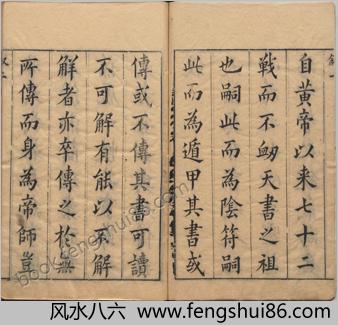 自黃帝以来七十二
戰而不衂天書之祖
也嗣此而為陰符嗣
此而為遁甲其書或
傳或不傳其書可讀
不可解有能以不解
解者亦卒傳之於無
所傳而身為帝師豈
风水八六 www.fengshui86.com